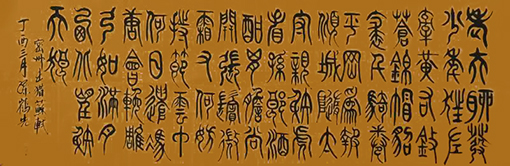 老夫聊發
少年狂左
牽黃右擎
蒼錦帽貂
裘千騎卷
平岡為報
傾城隨太
守親射虎
看孫郎酒
酣胸膽尚
開張鬢微
霜又何妨
持節雲中
何日遣馮
唐會挽雕
弓如滿月
西北望射
天狼
密州出獵蘇軾
丁酉三月